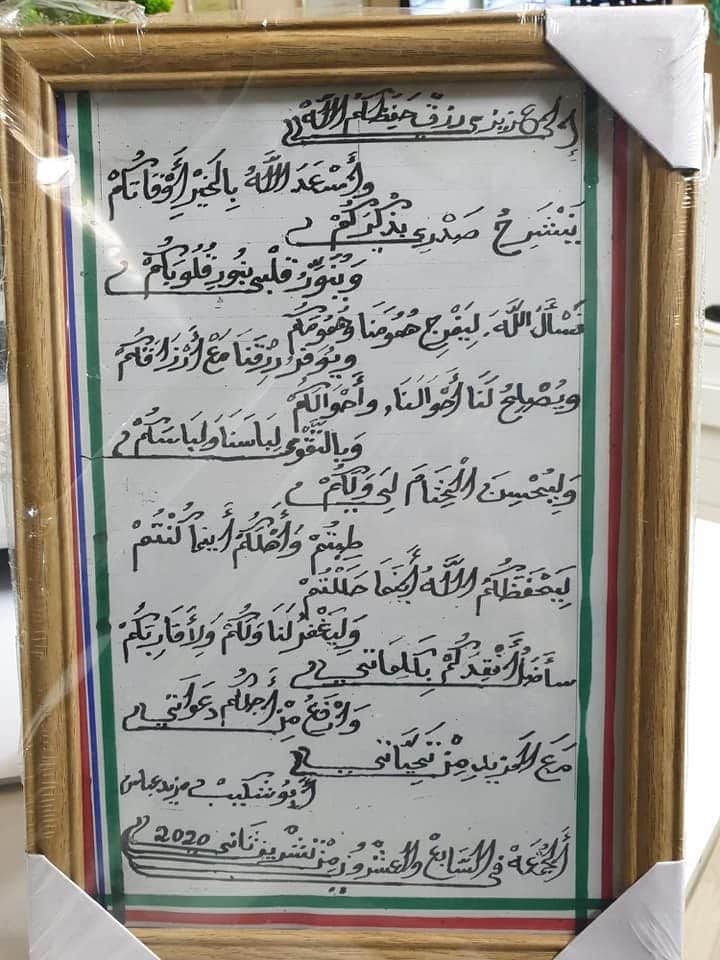 إلى عزيزي رزق حفظكم الله
وأسْعَدَ اللَّهُ بِالخَيْرِ أَوْقَاتُكُمْ
يَنْشَرِحُ صَدْرِي بِذِكْرِكُمْ
وَيُنَوِّرُ قلْبي بنُورِ قُلُوبِكُمْ
نَسْأَلُ اللَّهَ، لِيَفْرِجَ هُمُومَنَا وَهُمُومَكُمْ
ويُوَفِّرُ رِزْقَنَا مَعْ أَرْزَاقكُمْ
ويُصْلِحُ لَنَا أَحْوَالَنَا، وأَحْوَالَكُمْ
وَبِالتَّقْوَى لِبَاسَنَا وَلِبَاسَكُمْ
وَلِيُحْسِنَ الْخِتَامَ لِي وَلَكُمْ
طِبْتُمْ وَأَهْلَكُمْ أَينمَا كُنْتُمْ
لِيَحْفَظَكُمُ اللَّهُ أَيْنَمَا حَلَلْتُمْ
وَلِيَغْفِرْ لَنَا وَلَكُمْ وَلأَقَارِبِكُمْ
سأضَلُّ أَفْقِدُكُمْ بِكَلِمَاتي
وَارْفَعُ مِنْ أَجلِكُمْ دَعَوَاتي
مَعَ المَزيدِ مِنْ تَحِيَّاتي
أبو شكيب مزيد عباس
أَلجُمُعَةْ في السَّابِعْ والعشْرونْ مِنْ تشْرين ثاني 2020